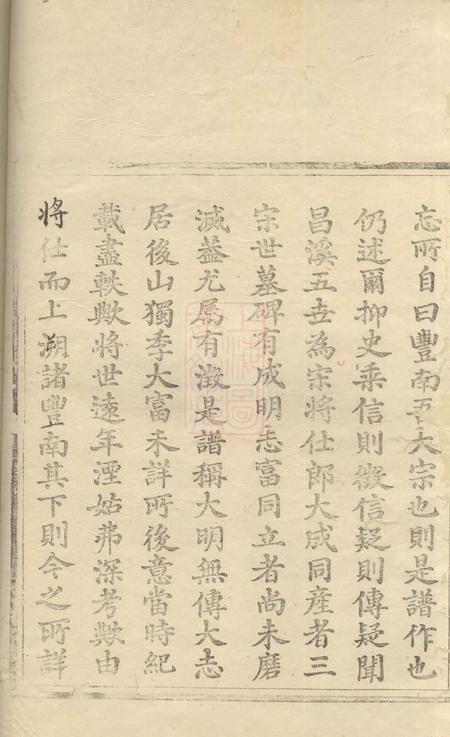 忘所自曰豐南吾大宗也則是譜作也
仍述爾抑史乘信則徵信疑則傳疑聞
昌溪五世為宗將仕郎大成同產者三
宗世墓碑有成明志富同立者尚未磨
滅葢尤為有徵是譜稱大明無傳大志
居後山獨季大富未詳所後意當時紀
載盡軼歟將世遠年湮姑弗深考歟由
將仕而上溯諸豐南其下則今之所詳